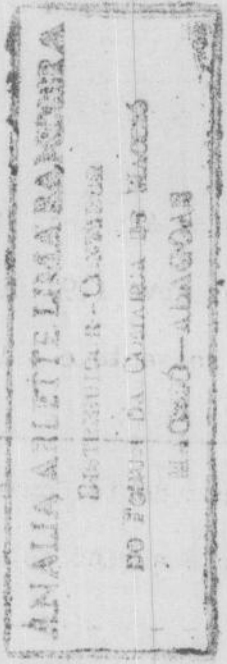 ANALIA ARLETTE LIMA BANDEIRA
DISTRIBUIDOR-CONTADOR
DO FORUM DA COMARCA DE MACEIÓ
MACEIÓ—ALAGOAS